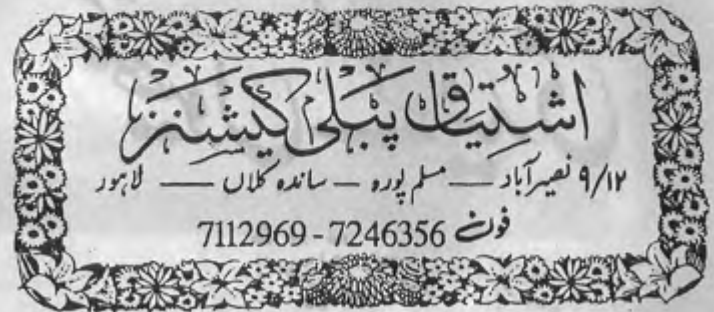 اشتیاق پبلی کیشنز
۹/۱۲ نصیر آباد — مسلم پورہ — ساندہ کلاں — لاہور
فون 7112969 - 7246356